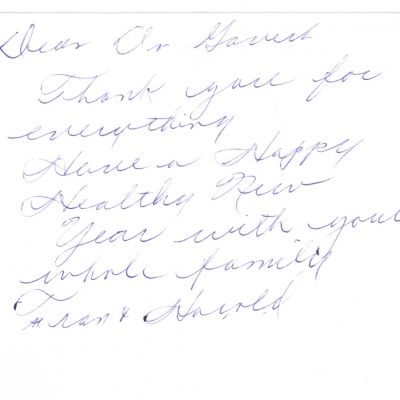 Dear Dr Gavert
Thank you for
everything
Have a Happy
Healthy New
Year with your
whole family
Fran & Harold